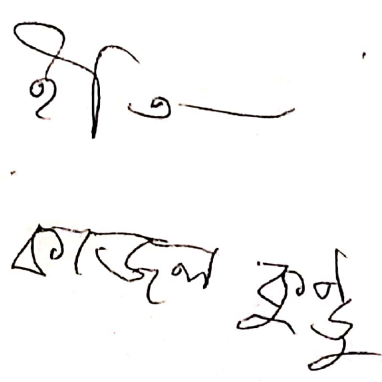 ইতি—
কাজল কুন্ডু